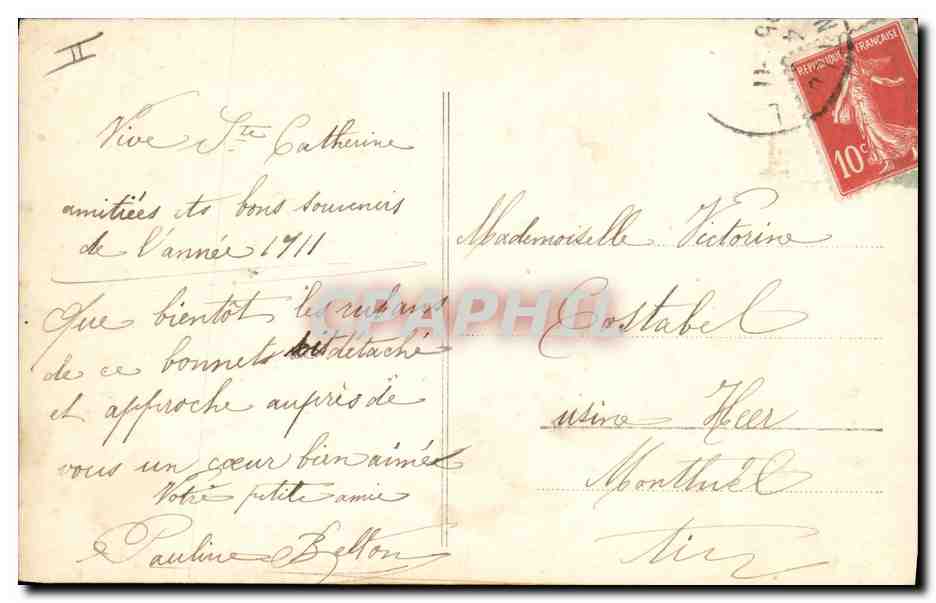 II
Vive Ste Catherine
amitiées ets bons souvenirs
de l'année 1911
Que bientôt les rubans
de ce bonnet soit détaché
et approche auprès de
vous un cœur bien aimée
Votre petite amie
Pauline Belton
RÉPUBLIQUE FRANÇAISE
10c
Mademoiselle Victorine
Costabel
usine Heer
Montluel
Ain
CPAPHIL